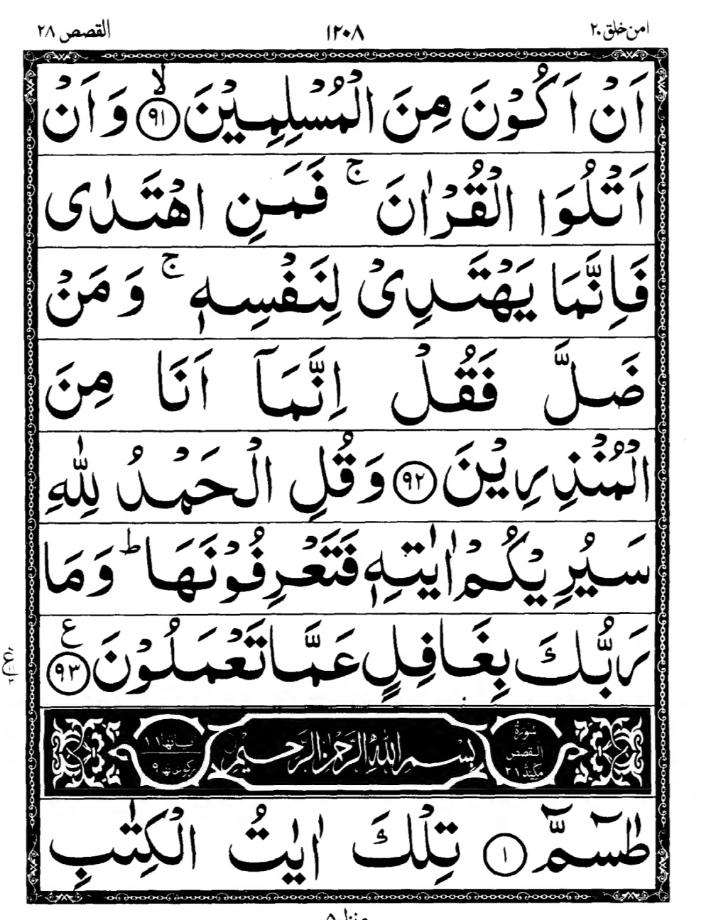 امن خلق ٢٠ ١٢٠٨ القصص ٢٨
اَنْ اَكُوْنَ مِنَ الْمُسْلِمِيْنَ ۙ﴿٩١﴾ وَ اَنْ
اَتْلُوَا الْقُرْاٰنَ ۚ فَمَنِ اهْتَدٰى
فَاِنَّمَا يَهْتَدِىْ لِنَفْسِهٖ ۚ وَ مَنْ
ضَلَّ فَقُلْ اِنَّمَاۤ اَنَا مِنَ
الْمُنْذِرِيْنَ ﴿٩٢﴾ وَ قُلِ الْحَمْدُ لِلّٰهِ
سَيُرِيْكُمْ اٰيٰتِهٖ فَتَعْرِفُوْنَهَا ؕ وَ مَا
رَبُّكَ بِغَافِلٍ عَمَّا تَعْمَلُوْنَ ﴿٩٣﴾ ع
سورة القصص مكية ٢١ بسم الله الرحمن الرحيم
طٰسٓمّٓ ﴿١﴾ تِلْكَ اٰيٰتُ الْكِتٰبِ